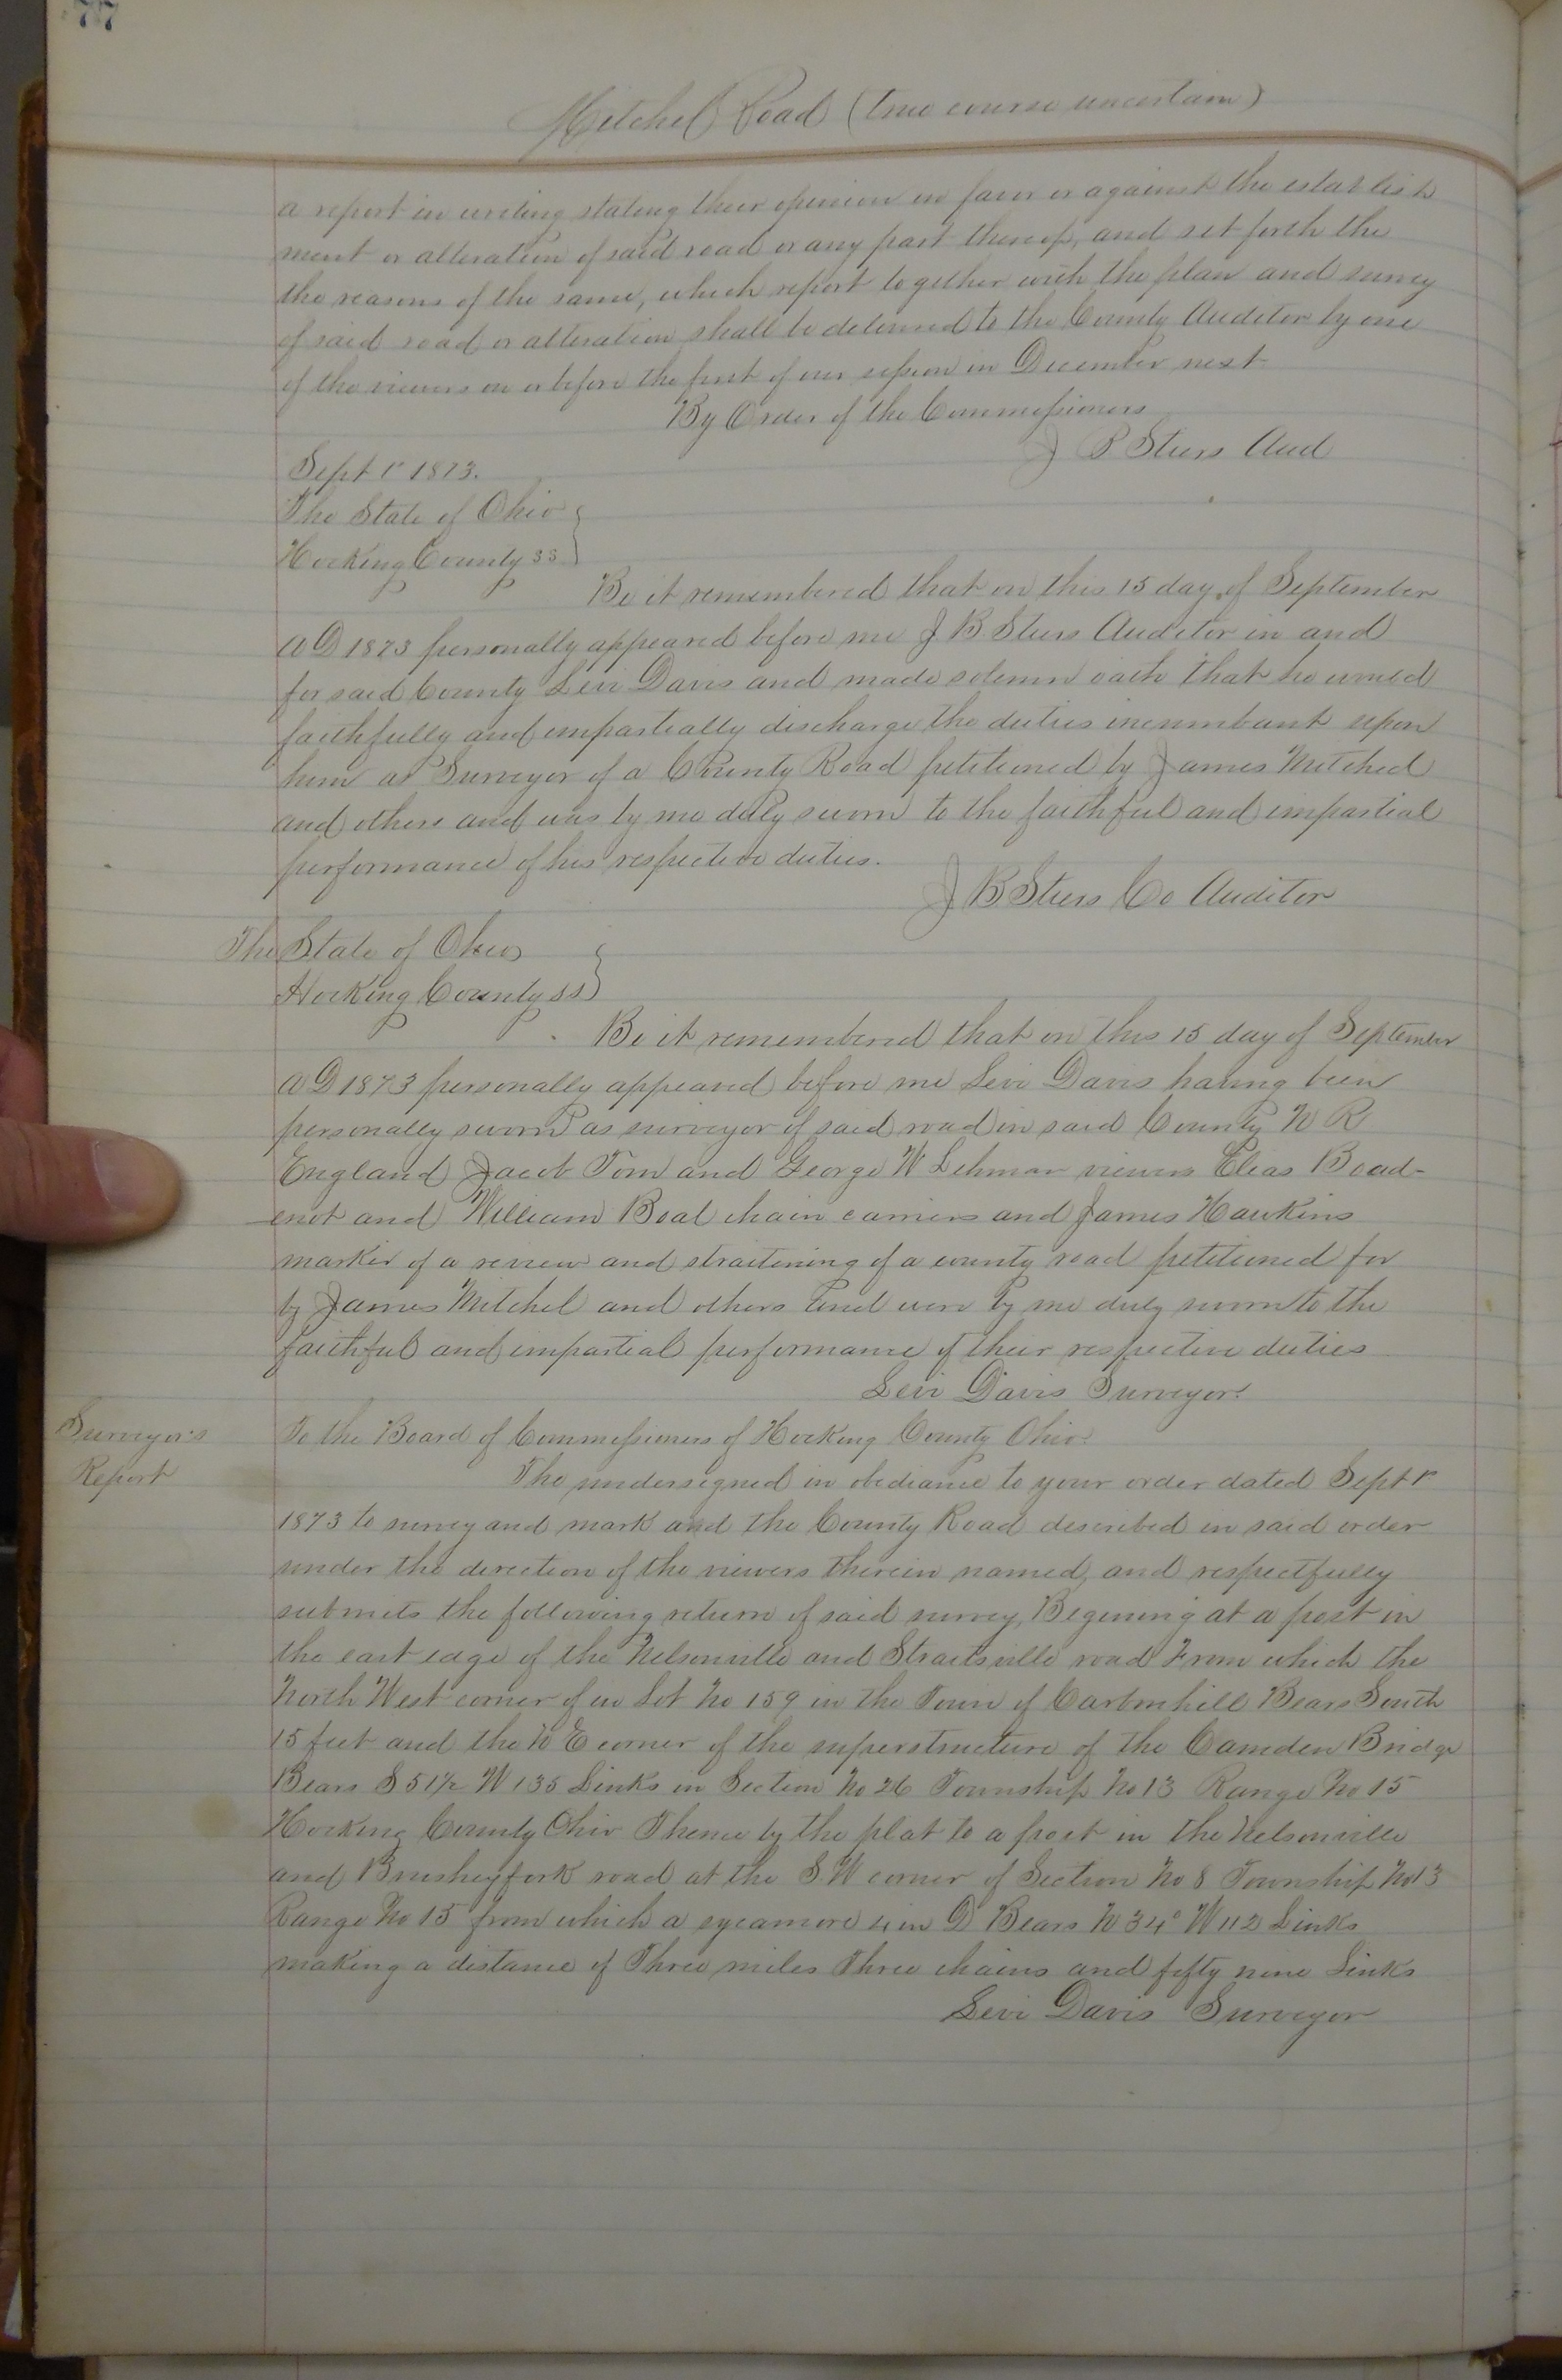 77
Mitchel Road (true course uncertain)
a report in writing stating their opinion in favor or against the establish
ment or alteration of said road or any part thereof, and set forth the
the reasons of the same, which report together with the plan and survey
of said road or alteration shall be delivered to the County Auditor by one
of the viewers on or before the first of our session in December next
By Order of the Commissioners
J B Stiers Aud
Sept 1st 1873.
The State of Ohio
Hocking County SS
Be it remembered that on this 15 day of September
A D 1873 personally appeared before me J B Stiers Auditor in and
for said County Levi Davis and made solemn oath that he would
faithfully and impartially discharge the duties incumbant upon
him as Surveyor of a County Road petitioned by James Mitchel
and others and was by me duly sworn to the faithful and impartial
performance of his respective duties.
J B Stiers Co Auditor
The State of Ohio
Hocking County SS
Be it remembered that on this 15 day of September
A D 1873 personally appeared before me Levi Davis having been
personally sworn as surveyor of said road in said County W R
England Jacob Tom and George W Lehman viewers Elias Boud-
enot and William Beal chain carriers and James Hawkins
marker of a review and straitening of a county road petitioned for
by James Mitchel and others and were by me duly sworn to the
faithful and impartial performance of their respective duties
Levi Davis Surveyor
Surveyor's
Report
To the Board of Commissioners of Hocking County Ohio.
The undersigned in obediance to your order dated Sept 1st
1873 to survey and mark and the County Road described in said order
under the direction of the viewers therein named, and respectfully
submits the following return of said survey, Begening at a post in
the east edge of the Nelsonville and Straitsville road From which the
North West corner of in Lot No 159 in the Town of Carbonhill Bears South
15 feet and the N E corner of the superstructure of the Camden Bridge
Bears S 51½ W 135 Links in Section No 26 Township No 13 Range No 15
Hocking County Ohio Thence by the plat to a post in the Nelsonville
and Brusheyfork road at the S W corner of Section No 8 Township No 13
Range No 15 from which a sycamore 4 in D Bears N 34° W 112 Links
making a distance of Three miles Three chains and fifty nine Links
Levi Davis Surveyor